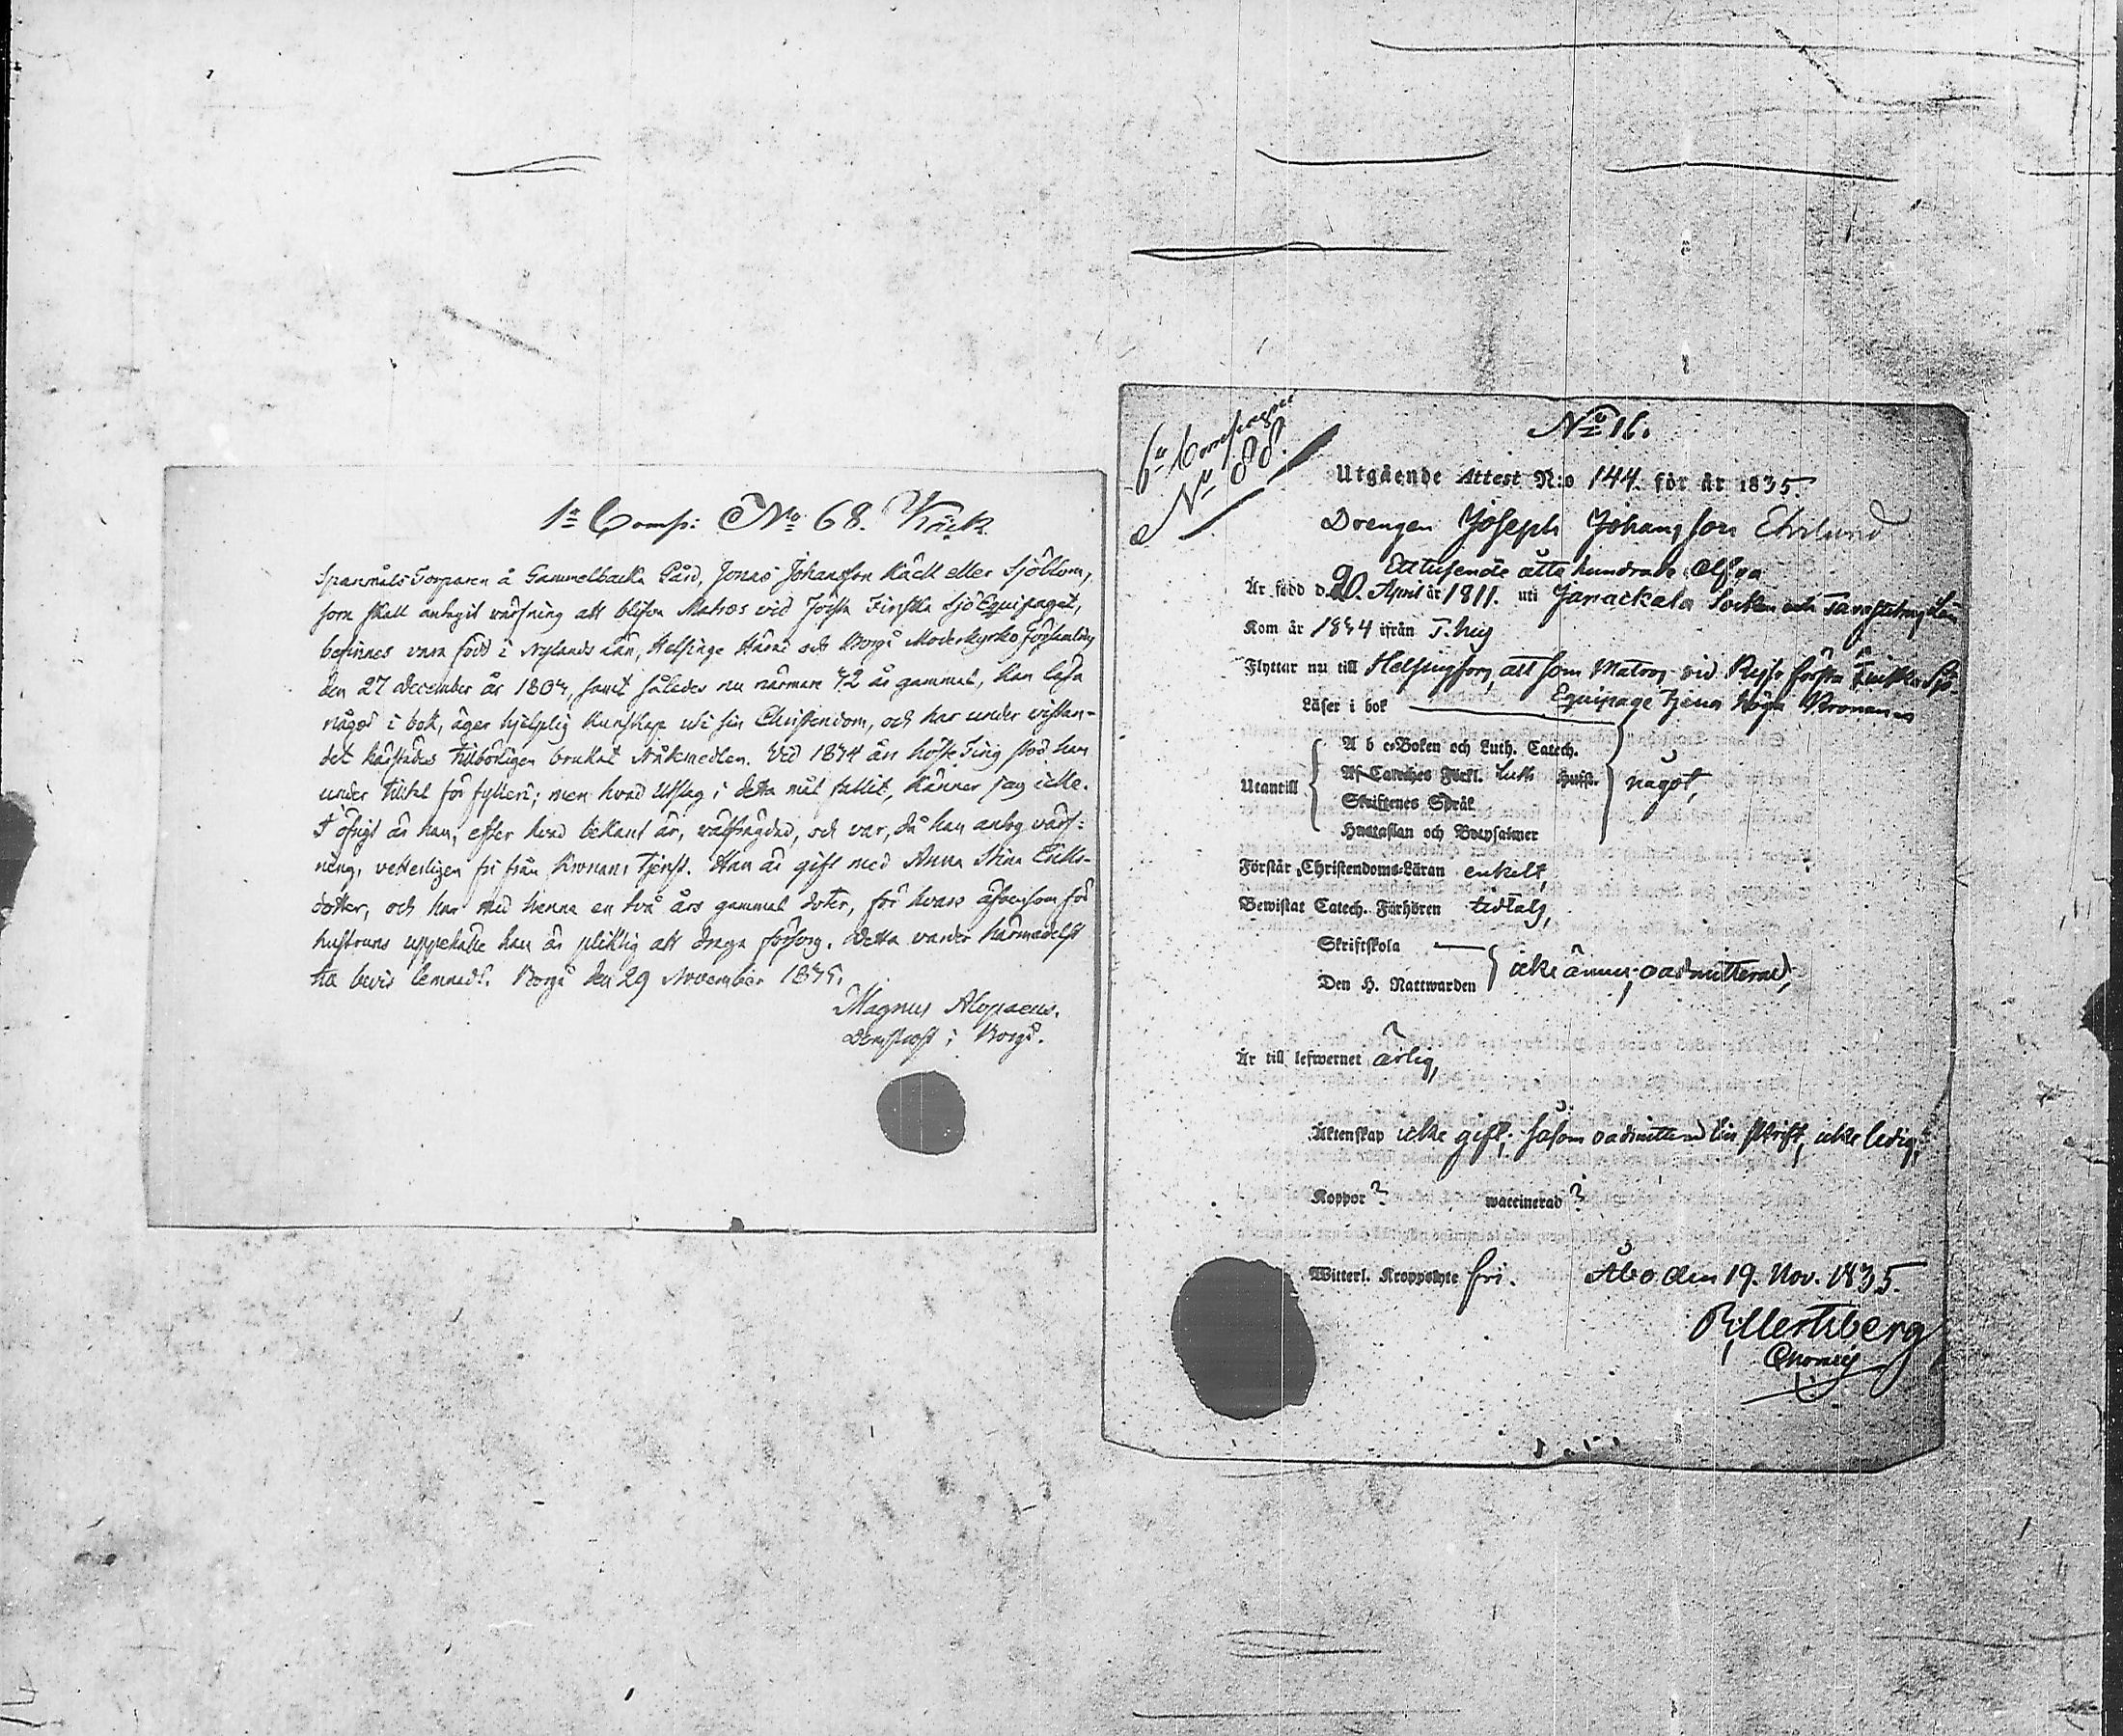 1a Comp: No 68. Käck
Spanmåls Torparen å Gammelbacka Gård, Jonas Johansson Käck eller Sjöblom,
som skall antagit värfning att blifva Matros vid Första Finska Sjö Equipaget,
befinnes vara född i Nylands Län, Helsinge Härad och Borgå Moderkyrko Församling
den 27 December år 1803, samt således nu närmare 32 år gammal, kan läsa
något i bok, äger hjelplig kunskap uti sin Christendom, och har under vistan-
det härstädes tillbörligen brukat Nådemedlen. Vid 1834 års höste Ting stod han
under tilltal för fylleri; men hvad Utslag i detta mål fallit, känner jag icke.
I öfrigt är han, efter hvad bekant är, välfrägdad, och var, då han antog värf-
ning, vetterligen fri från Kronans Tjenst. Han är gift med Anna Stina Eriks-
dotter, och har med henne en två års gammal dotter, för hvars äfvensom för
hustruns uppehälle han är pliktig att draga försorg. Detta varder härmedelst
till bevis lemnadt. Borgå den 29 November 1835.
Magnus Alopaeus.
Domprost i Borgå.
6te Compagniet
No 88.
No 16.
Utgående Attest N:o 144. för år 1835.
Drengen Joseph Johansson Ehrlund
Ettusende åtta hundrade Elfva
Är född d. 20. April år 1811. uti Janackala Socken och Tavastehus Län
Kom år 1834 ifrån
Flyttar nu till Helsingfors, att som Matros vid Ryska första Finska Sjö-
Equipage tjena höga Kronan
Läser i bok
A b c-Boken och Luth. Catech.
Af Cateches Förkl. Luth. Hust.
Utantill något,
Skriftenes Språk
Hustaflan och Botpsalmer
Förstår Christendoms-Läran enkelt,
Bewistat Catech. Förhören tidtals,
Skriftskola
icke ännu, oadmitterad;
Den H. Nattwarden
Är till lefwernet ärlig,
Äktenskap icke gift; såsom oadmitterad till skrift, icke ledig;
Koppor ? waccinerad ?
Witterl. Kroppslyte fri. Åbo den 19. Nov. 1835.